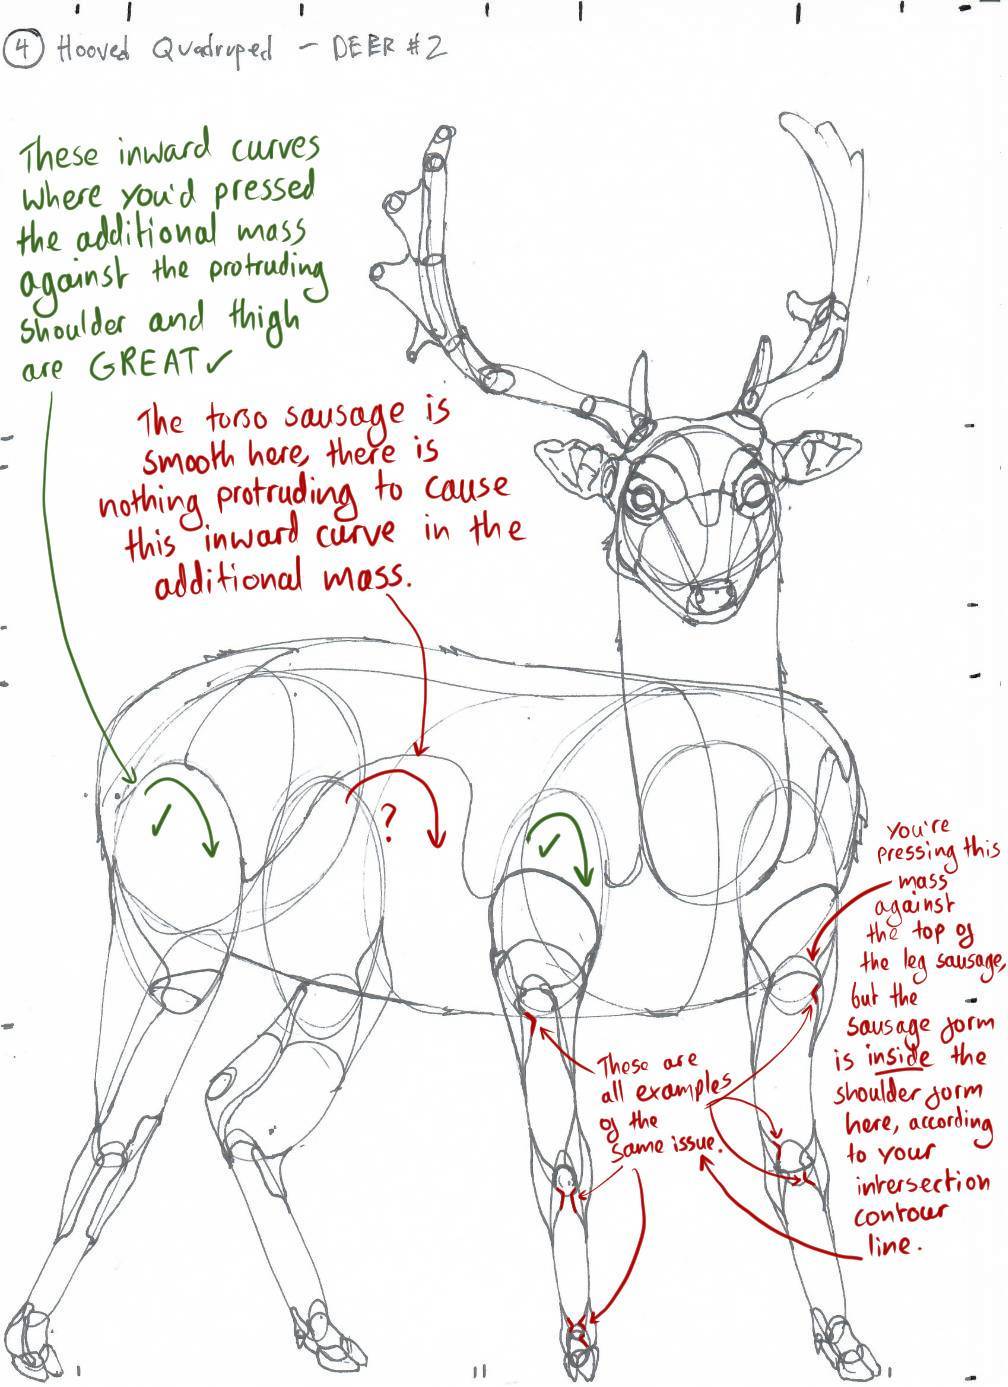 4 Hooved Quadruped - DEER #2
These inward curves
where you'd pressed
the additional mass
against the protruding
shoulder and thigh
are GREAT ✓
The torso sausage is
smooth here, there is
nothing protruding to cause
this inward curve in the
additional mass.
✓
?
✓
You're
pressing this
mass
against
the top of
the leg sausage,
but the
sausage form
is inside the
shoulder form
here, according
to your
intersection
contour
line.
These are
all examples
of the
same issue.